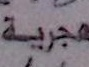 مجربة